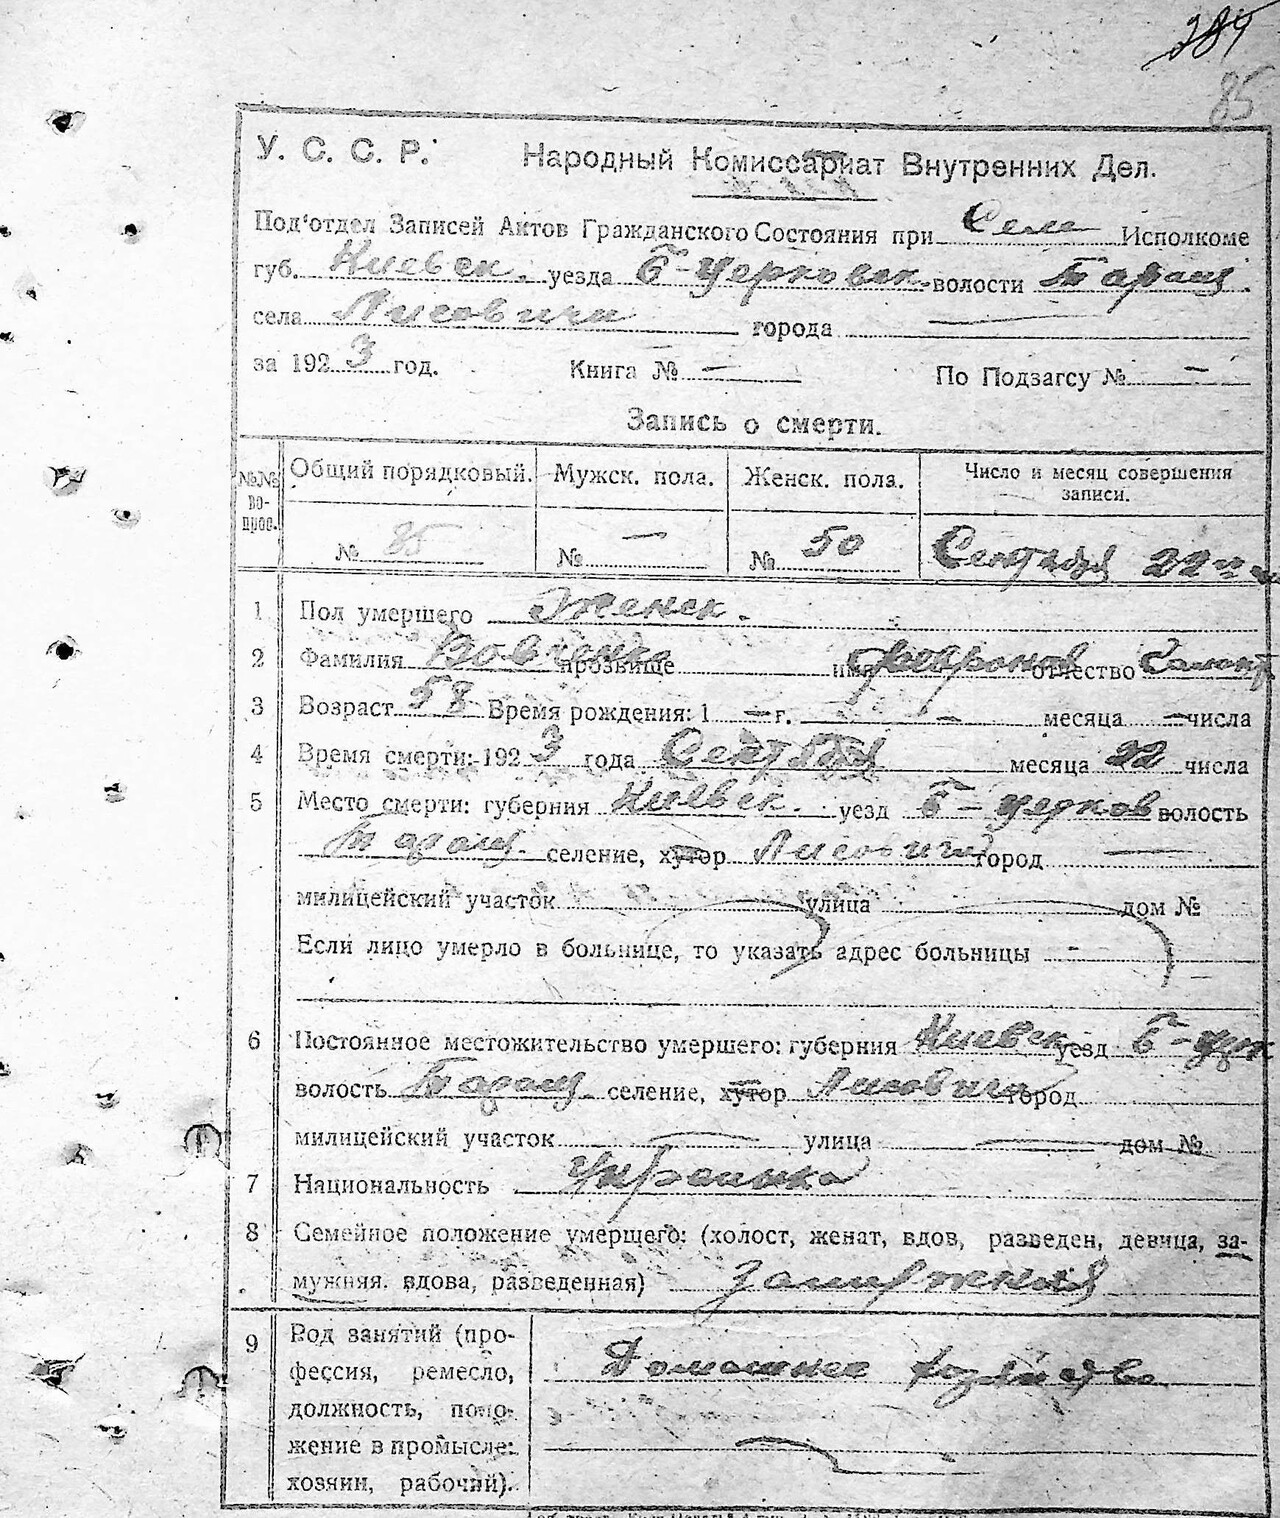 284
85
У. С. С. Р. Народный Комиссариат Внутренних Дел.
Под'отдел Записей Актов Гражданского Состояния при Сель Исполкоме
губ. Киевск. уезда Б-Церковск. волости Таращ.
села Лисовичи города —
за 1923 год. Книга № — По Подзагсу № —
Запись о смерти.
№№ вопрос. Общий порядковый. Мужск. пола. Женск. пола. Число и месяц совершения записи.
№ 85 № — № 50 Сентября 22
1 Пол умершего Женск.
2 Фамилия Вовченко прозвище имя отчество
3 Возраст 58 Время рождения: 1 — г. — месяца — числа
4 Время смерти: 1923 года Сентября месяца 22 числа
5 Место смерти: губерния Киевск. уезд Б-Церков волость
Таращ. селение, хутор Лисовичи город —
милицейский участок улица дом №
Если лицо умерло в больнице, то указать адрес больницы -
6 Постоянное местожительство умершего: губерния Киевск уезд Б-Церк
волость Таращ. селение, хутор Лисовичи город
милицейский участок — улица — дом №
7 Национальность Украинка
8 Семейное положение умершего: (холост, женат, вдов, разведен, девица, за-
мужняя. вдова, разведенная) Замужняя
9 Род занятий (про- Домашнее хозяйство
фессия, ремесло,
должность, поло-
жение в промысле:
хозяин, рабочий).